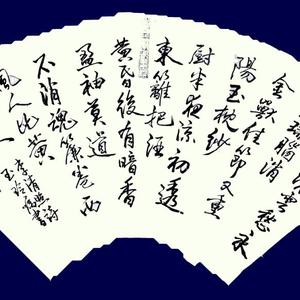 雲愁永
瑞腦消
金獸佳節又重
陽玉枕紗
廚半夜涼初透
東籬把酒
黃昏後有暗香
盈袖莫道
不消魂簾卷西
風人比黃
李清照詩